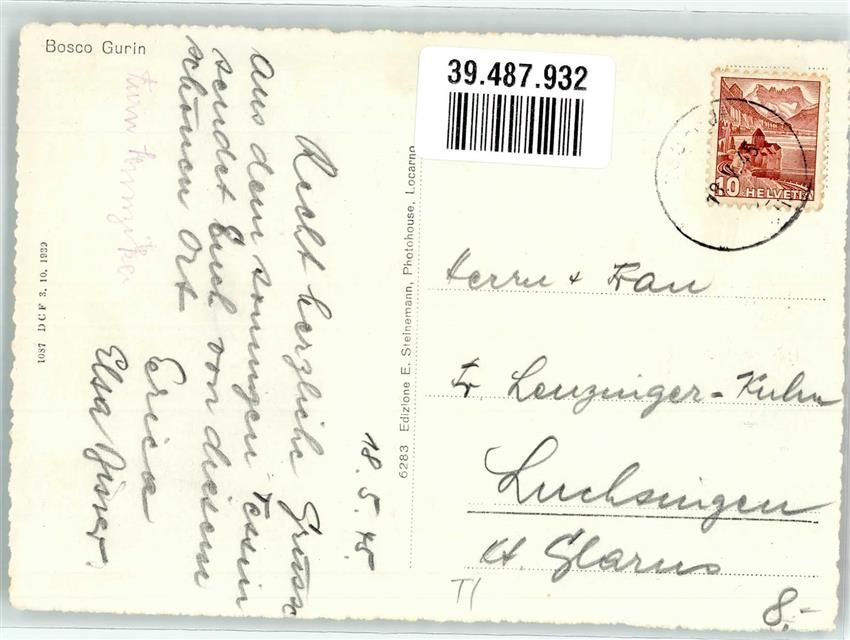 Bosco Gurin
39.487.932
10 HELVETIA
18.5.45.
Recht herzliche Grüsse
aus dem sonnigen Tessin
sendet Euch von diesem
schönen Ort
Erica
Elsa
6283 Edizione E. Steinemann, Photohouse, Locarno
1087 DCF 3. 10. 1939
Herrn + Frau
Fr. Lenzinger-Kuhn
Luchsingen
Kt. Glarus
TI
8.-